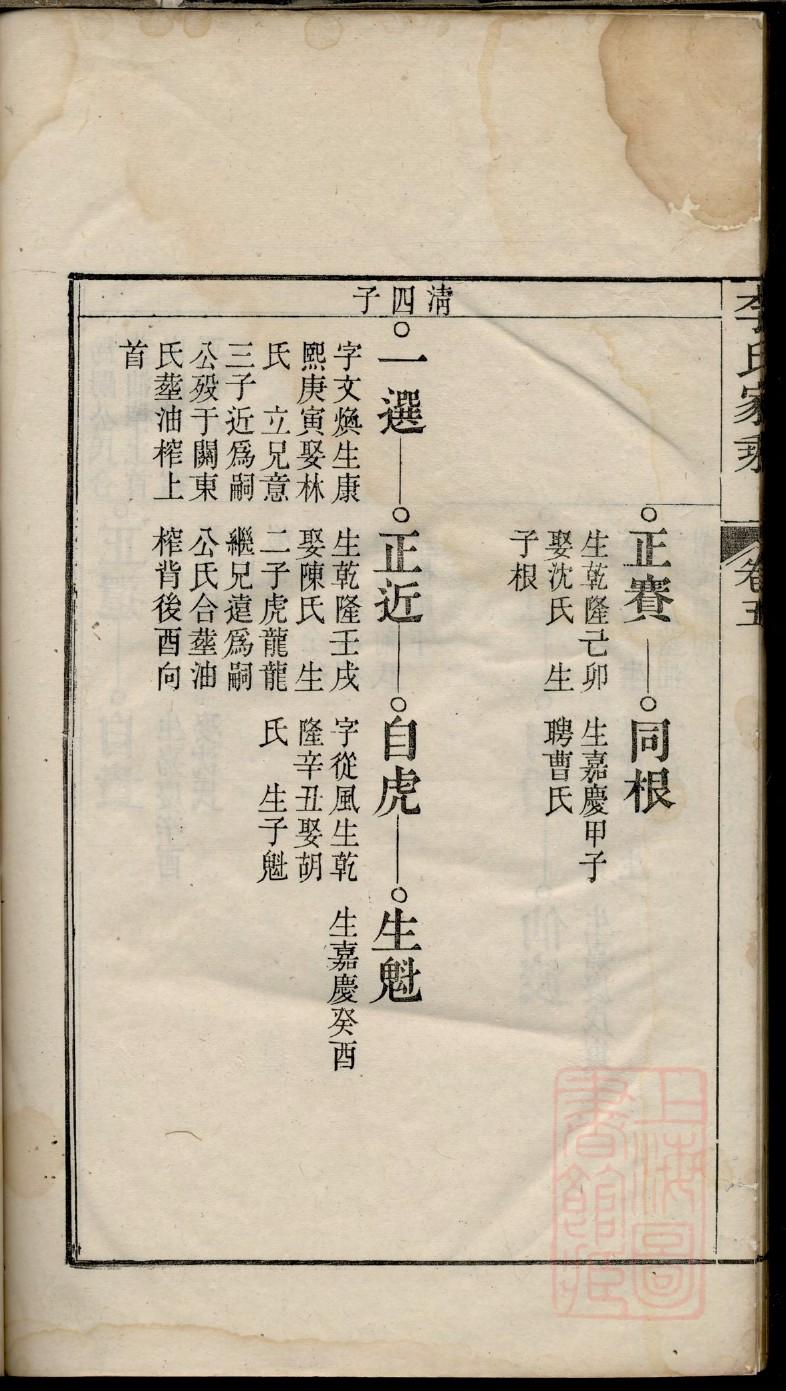 李氏家乘
卷五
正賽
生乾隆己卯
娶沈氏 生
子根
同根
生嘉慶甲子
聘曹氏
清四子
一選
字文煥生康
熙庚寅娶林
氏 立兄意
三子近為嗣
公歿于關東
氏塟油榨上
首
正近
生乾隆壬戌
娶陳氏 生
二子虎龍龍
繼兄遠爲嗣
公氏合塟油
榨背後酉向
自虎
字從風生乾
隆辛丑娶胡
氏 生子魁
生魁
生嘉慶癸酉
上海圖
書館藏